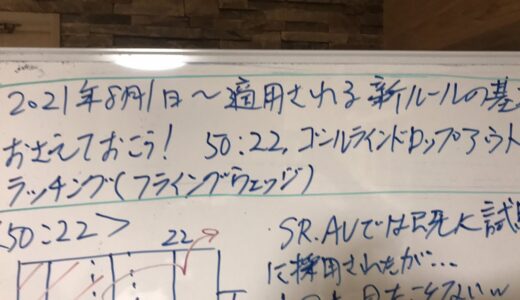 2021年8月1日〜適用される新ルールの基
おさえておこう! 50:22, ゴールラインドロップアウト
ラッチング(フライングウェッジ)
50:22>
22
・SR.AUでは既に試
に採用されたが…